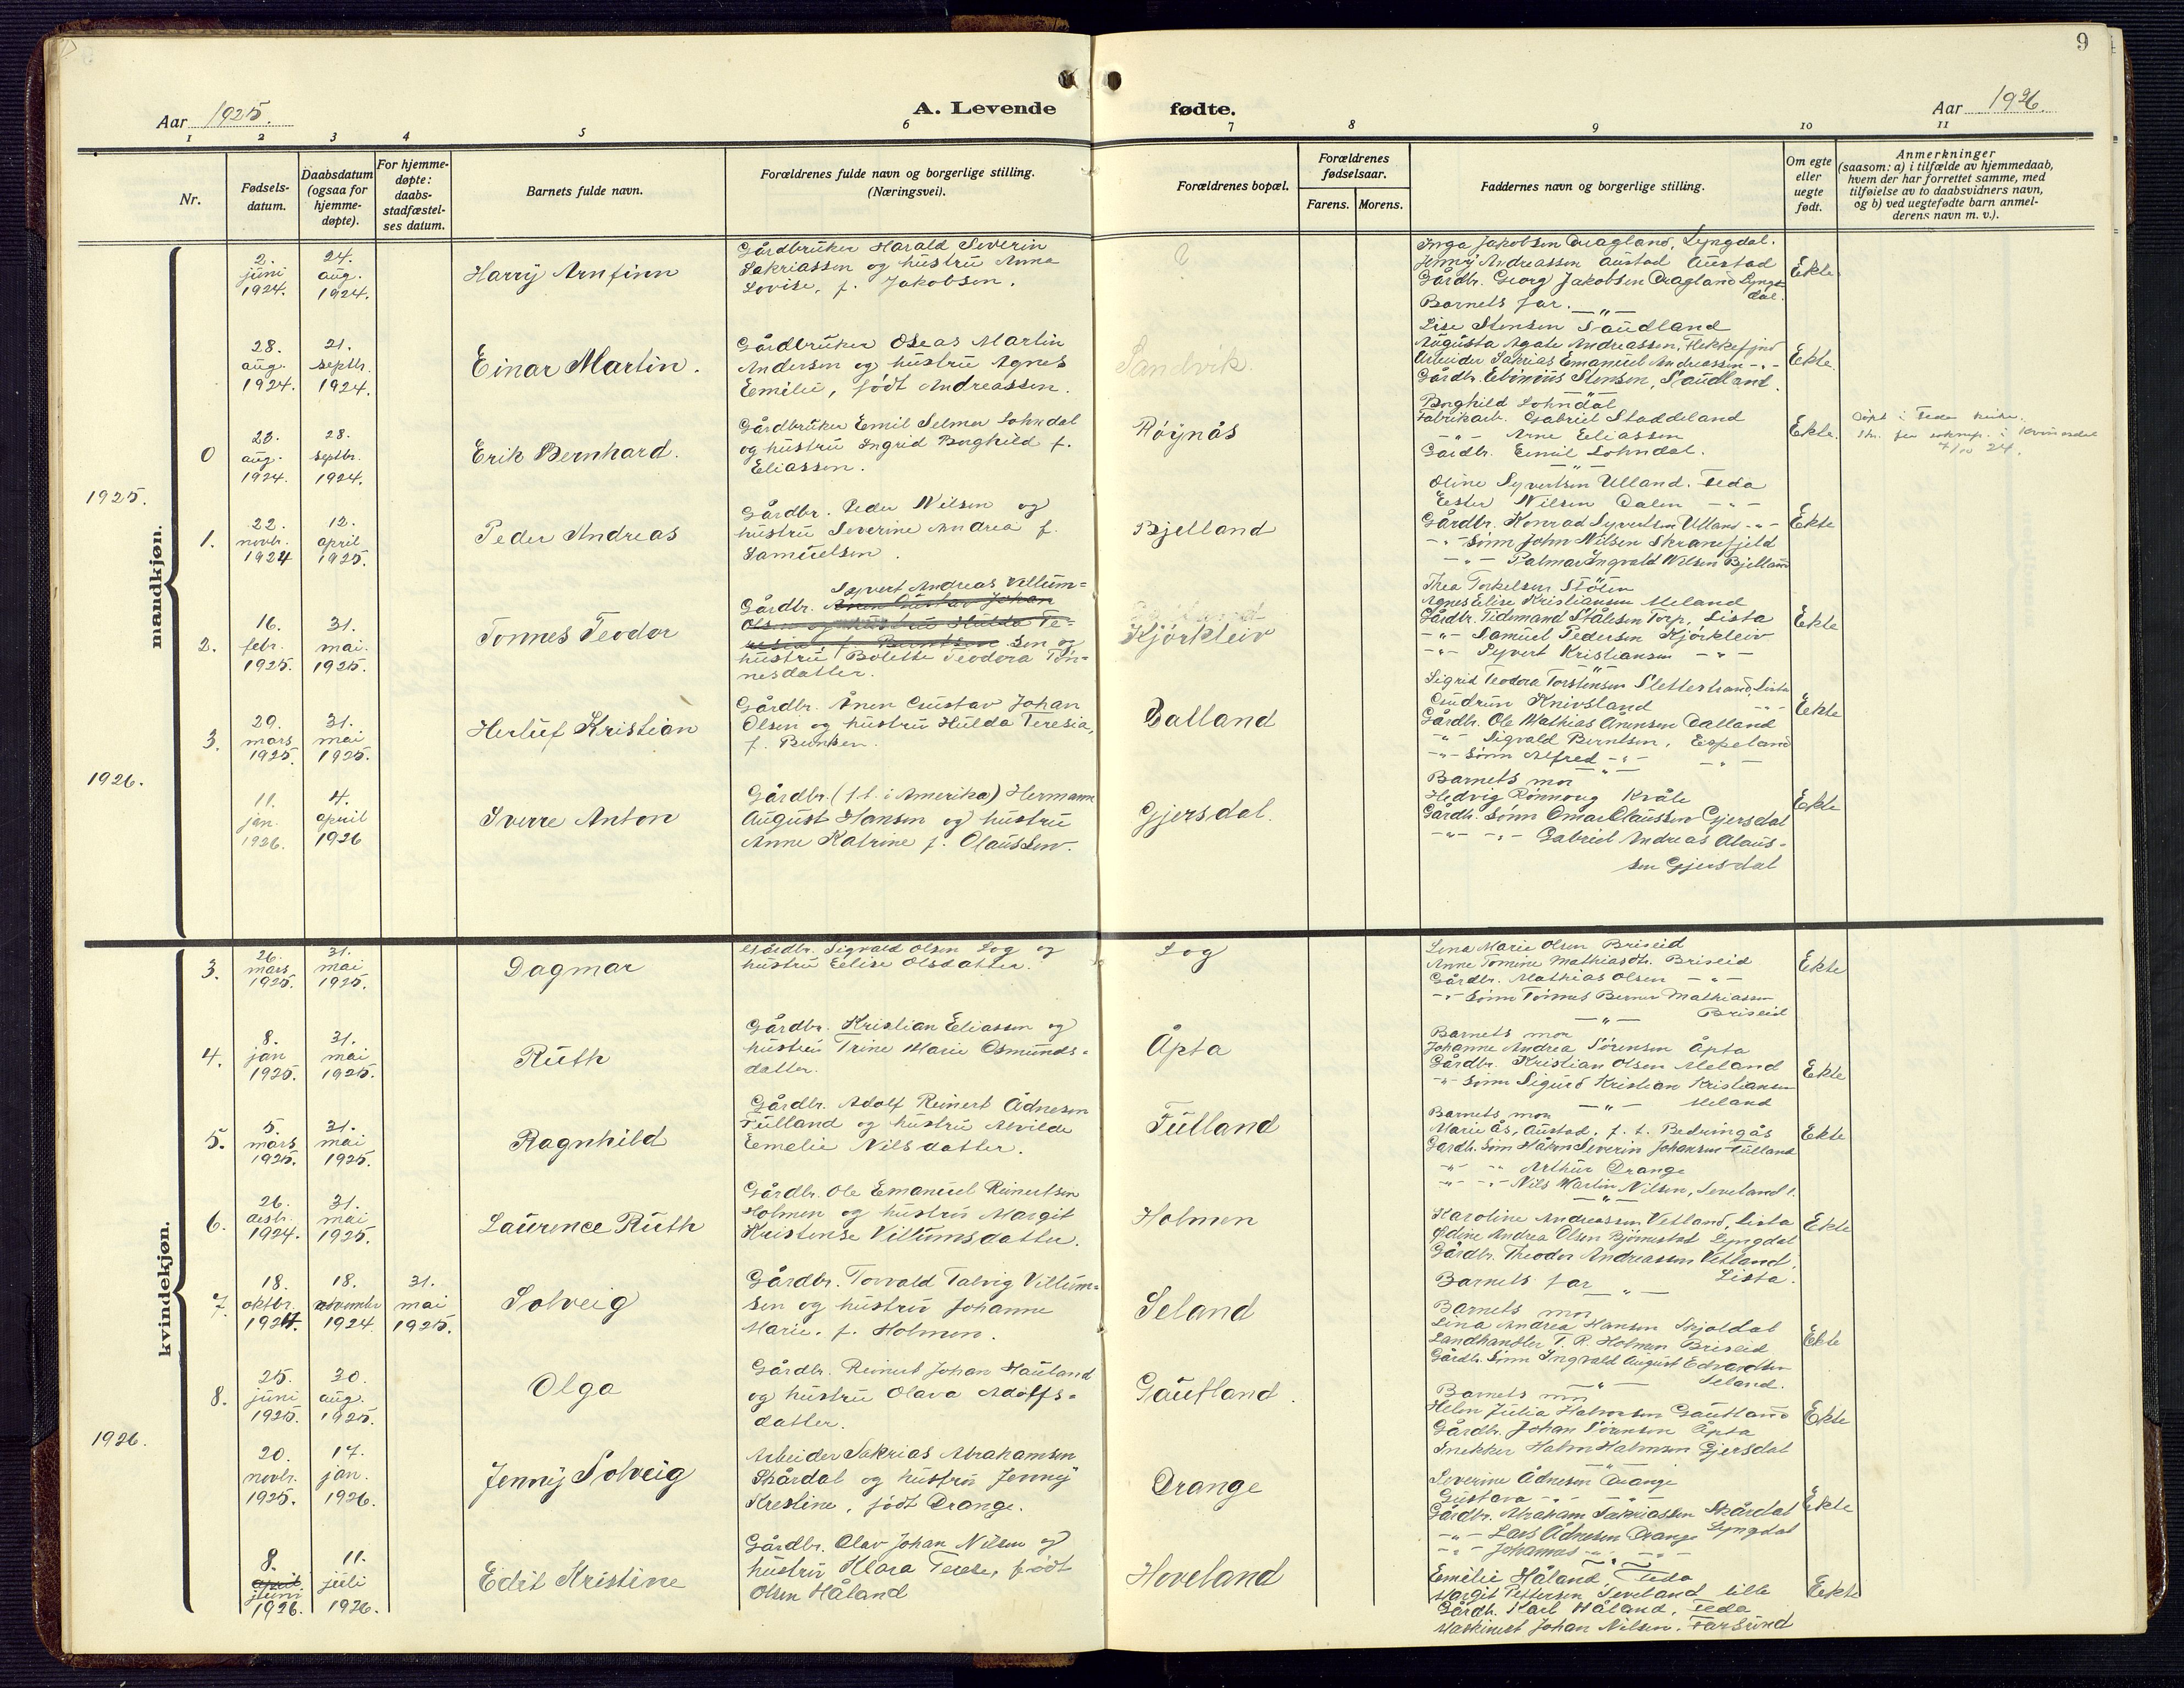 9
Aar 1925.
A. Levende fødte.
Aar 1926.
1 2 3 4 5 6 7 8 9 10 11
Nr.
Fødsels-
datum.
Daabsdatum
(ogsaa for
hjemme-
døpte).
For hjemme-
døpte:
daabs-
stadfæstel-
ses datum.
Barnets fulde navn.
Forældrenes fulde navn og borgerlige stilling.
(Næringsvei).
Forældrenes bopæl.
Forældrenes
fødselsaar.
Farens. Morens.
Faddernes navn og borgerlige stilling.
Om egte
eller
uegte
født.
Anmerkninger
(saasom: a) i tilfælde av hjemmedaab,
hvem der har forrettet samme, med
tilføielse av to daabsvidners navn,
og b) ved uegtefødte barn anmel-
derens navn m. v.).
1925.
mandkjøn.
2.
juni
1924.
24.
aug.
1924.
Harry Arnfinn
Gårdbruker Harald Severin
Sakriassen og hustru Anna
Lovise, f. Jakobsen.
Inga Jakobsen Dragland, Lyngdal.
Jenny Andreassen Austad Austad
Gårdbr. Georg Jakobsen Dragland Lyng-
dal.
Barnets far. —"—
Ekte
28.
aug.
1924.
21.
septb.
1924.
Einar Martin.
Gårdbruker Oseas Martin
Andersen og hustru Agnes
Emilie, født Andreassen.
Sandvik.
Lise Stensen Saudland
Augusta Agate Andreassen, Flekkefjord
Arbeider Sakrias Emanuel Andreassen -"-
Gårdbr. Stensen, Saudland.
Ekte.
0
23.
aug.
1924.
28.
septbr.
1924.
Erik Bernhard.
Gårdbruker Emil Selmer Lohndal
og hustru Ingrid Borghild f.
Eliassen.
Røynås
Borghild Lohndal
Fabrikarb. Gabriel Staddeland
-"- Arne Eliassen
Gårdbr. Emil Lohndal.
—"—
Ekte.
Døpt i Feda kirke.
7/10 24.
1.
22.
novbr.
1924
12.
april
1925.
Peder Andreas
Gårdbr. Peder Nilsen og
hustru Severine Andrea f.
Samuelsen.
Bjelland
Oline Syvertsen Ulland. Feda
Ester Nilsen Dalen -"-
Gårdbr. Konrad Syvertsen Ulland -"-
-"- Sønn John Nilsen Skranefjeld
-"- Palmar Ingvald Nilsen Bjelland
Ekte
2.
16.
febr.
1925.
31.
mai.
1925.
Tønnes Teodor
Syvert Andreas Villum=
Gårdbr. Ånen Gustav Johan
Olsen og hustru Hulda Te-
resia, f. Berntsen sen og
hustru Bolette Teodora Tøn-
nesdatter.
Kjørkleiv
Thea Torkelsen Stølen
Agnes Elise Kristiansen Meland
Gårdbr. Tidemand Stålesen Torp, Lista
-"- Samuel Pedersen Kjørkleiv
-"- Syvert Kristiansen -"-
Ekte
3.
29.
mars
1925.
31.
mai
1925.
Herluf Kristian
Gårdbr. Ånen Gustav Johan
Olsen og hustru Hulda Teresia,
f. Berntsen.
Dalland
Sigrid Teodora Torstensen Slettestrand, Lista
Gudrun Knivsland -"-
Gårdbr. Ole Mathias Ånensen Dalland
-"- Sigvald Berntsen, Espeland
-"- Sønn Alfred -"- -"-
Ekte
1926.
11.
jan.
1926.
4.
april
1926
Sverre Anton
Gårdbr. (f.t. i Amerika) Hermann
August Hansen og hustru
Anne Katrine f. Olaussen.
Gjersdal.
Barnets mor
Hedvig Rønnoug Kråle
Gårdbr. Sønn Omar Olaussen Gjersdal
-"- -"- Gabriel Andreas Olaus-
sen Gjersdal
Ekte
kvindekjøn.
3.
26.
mars
1925.
31.
mai
1925.
Dagmar
Gårdbr. Sigvald Olsen Log og
hustru Elise Olsdatter.
Log
Lena Marie Olsen Briseid
Anne Tomine Mathiasdtr. Briseid
Gårdbr. Mathias Olsen -"-
-"- Sønn Tønnes Berner Mathiassen
—"— Briseid
Ekte
4.
8.
jan
1925.
31.
mai
1925.
Ruth
Gårdbr. Kristian Eliassen og
hustru Trine Marie Osmunds-
datter.
Åpta
Barnets mor
Johanne Andrea Sørensen Åpta
Gårdbr. Kristian Olsen Meland
-"- Sønn Sigurd Kristian Kristiansen
—"— Meland
Ekte
5.
5.
mars
1925.
31.
mai
1925.
Ragnhild
Gårdbr. Adolf Reinert Ådnesen
Fulland og hustru Alvilde
Emelie Nilsdatter.
Fulland
Barnets mor
Marie Ås, Austad, f. t. Bedringås
Gårdbr. Sønn Håkon Severin Johansen Fulland
-"- -"- Arthur Drange
-"- -"- Nils Martin Nilsen, Seveland l.
—"—
Ekte
6.
26.
desbr.
1924.
31.
mai
1925.
Laurence Ruth
Gårdbr. Ole Emanuel Reinertsen
Holmen og hustru Margit
Kristense Villumsdatter.
Holmen
Karoline Andreassen Vetland, Lista
Ødine Andrea Olsen Bjørnestad Lyngdal
Gårdbr. Theodor Andreassen Vetland.
Lista.
Barnets far —"—
Ekte
7.
18.
oktbr.
1924.
18.
november
1924.
31.
mai
1925.
Solveig
Gårdbr. Torvald Talvig Villum=
sen og hustru Johanne
Marie. f. Holmen.
Seland
Barnets mor
Lina Andrea Hansen Skjoldal
Landhandler T. R. Holmen Briseid
Gårdbr. Sønn Ingvald August Edvardsen
—"— Seland.
Ekte
8.
25.
juni
1925.
30.
aug.
1925.
Olga
Gårdbr. Reinert Johan Hauland
og hustru Olava Adolfs-
datter.
Gautland.
Barnets mor
Helen Julia Halvorsen Gautland
Gårdbr. Johan Sørensen Åpta
Snekker Halvor Halvorsen Gjersdal
—"—
Ekte
1926.
20.
novbr.
1925.
17.
jan.
1926.
Jenny Solveig
Arbeider Sakrias Abrahamsen
Skårdal og hustru Jenny
Krestine, født Drange.
Drange
Severine Ådnesen Drange
Gustava -"- -"-
Gårdbr. Abraham Sakriassen Skårdal
Lyngdal
-"- Lars Ådnesen Drange
-"- Johannes -"- -"-
Ekte
8.
april
juni
1926.
11.
juli
1926.
Edit Kristine
Gårdbr. Olav Johan Nilsen og
hustru Klara Terese, født
Olsen Håland
Hoveland
Emilie Håland, Feda
Margit Pettersen, Seveland lille
Gårdbr. Karl Håland, Feda
Maskinist Johan Nilsen. Farsund
Ekte